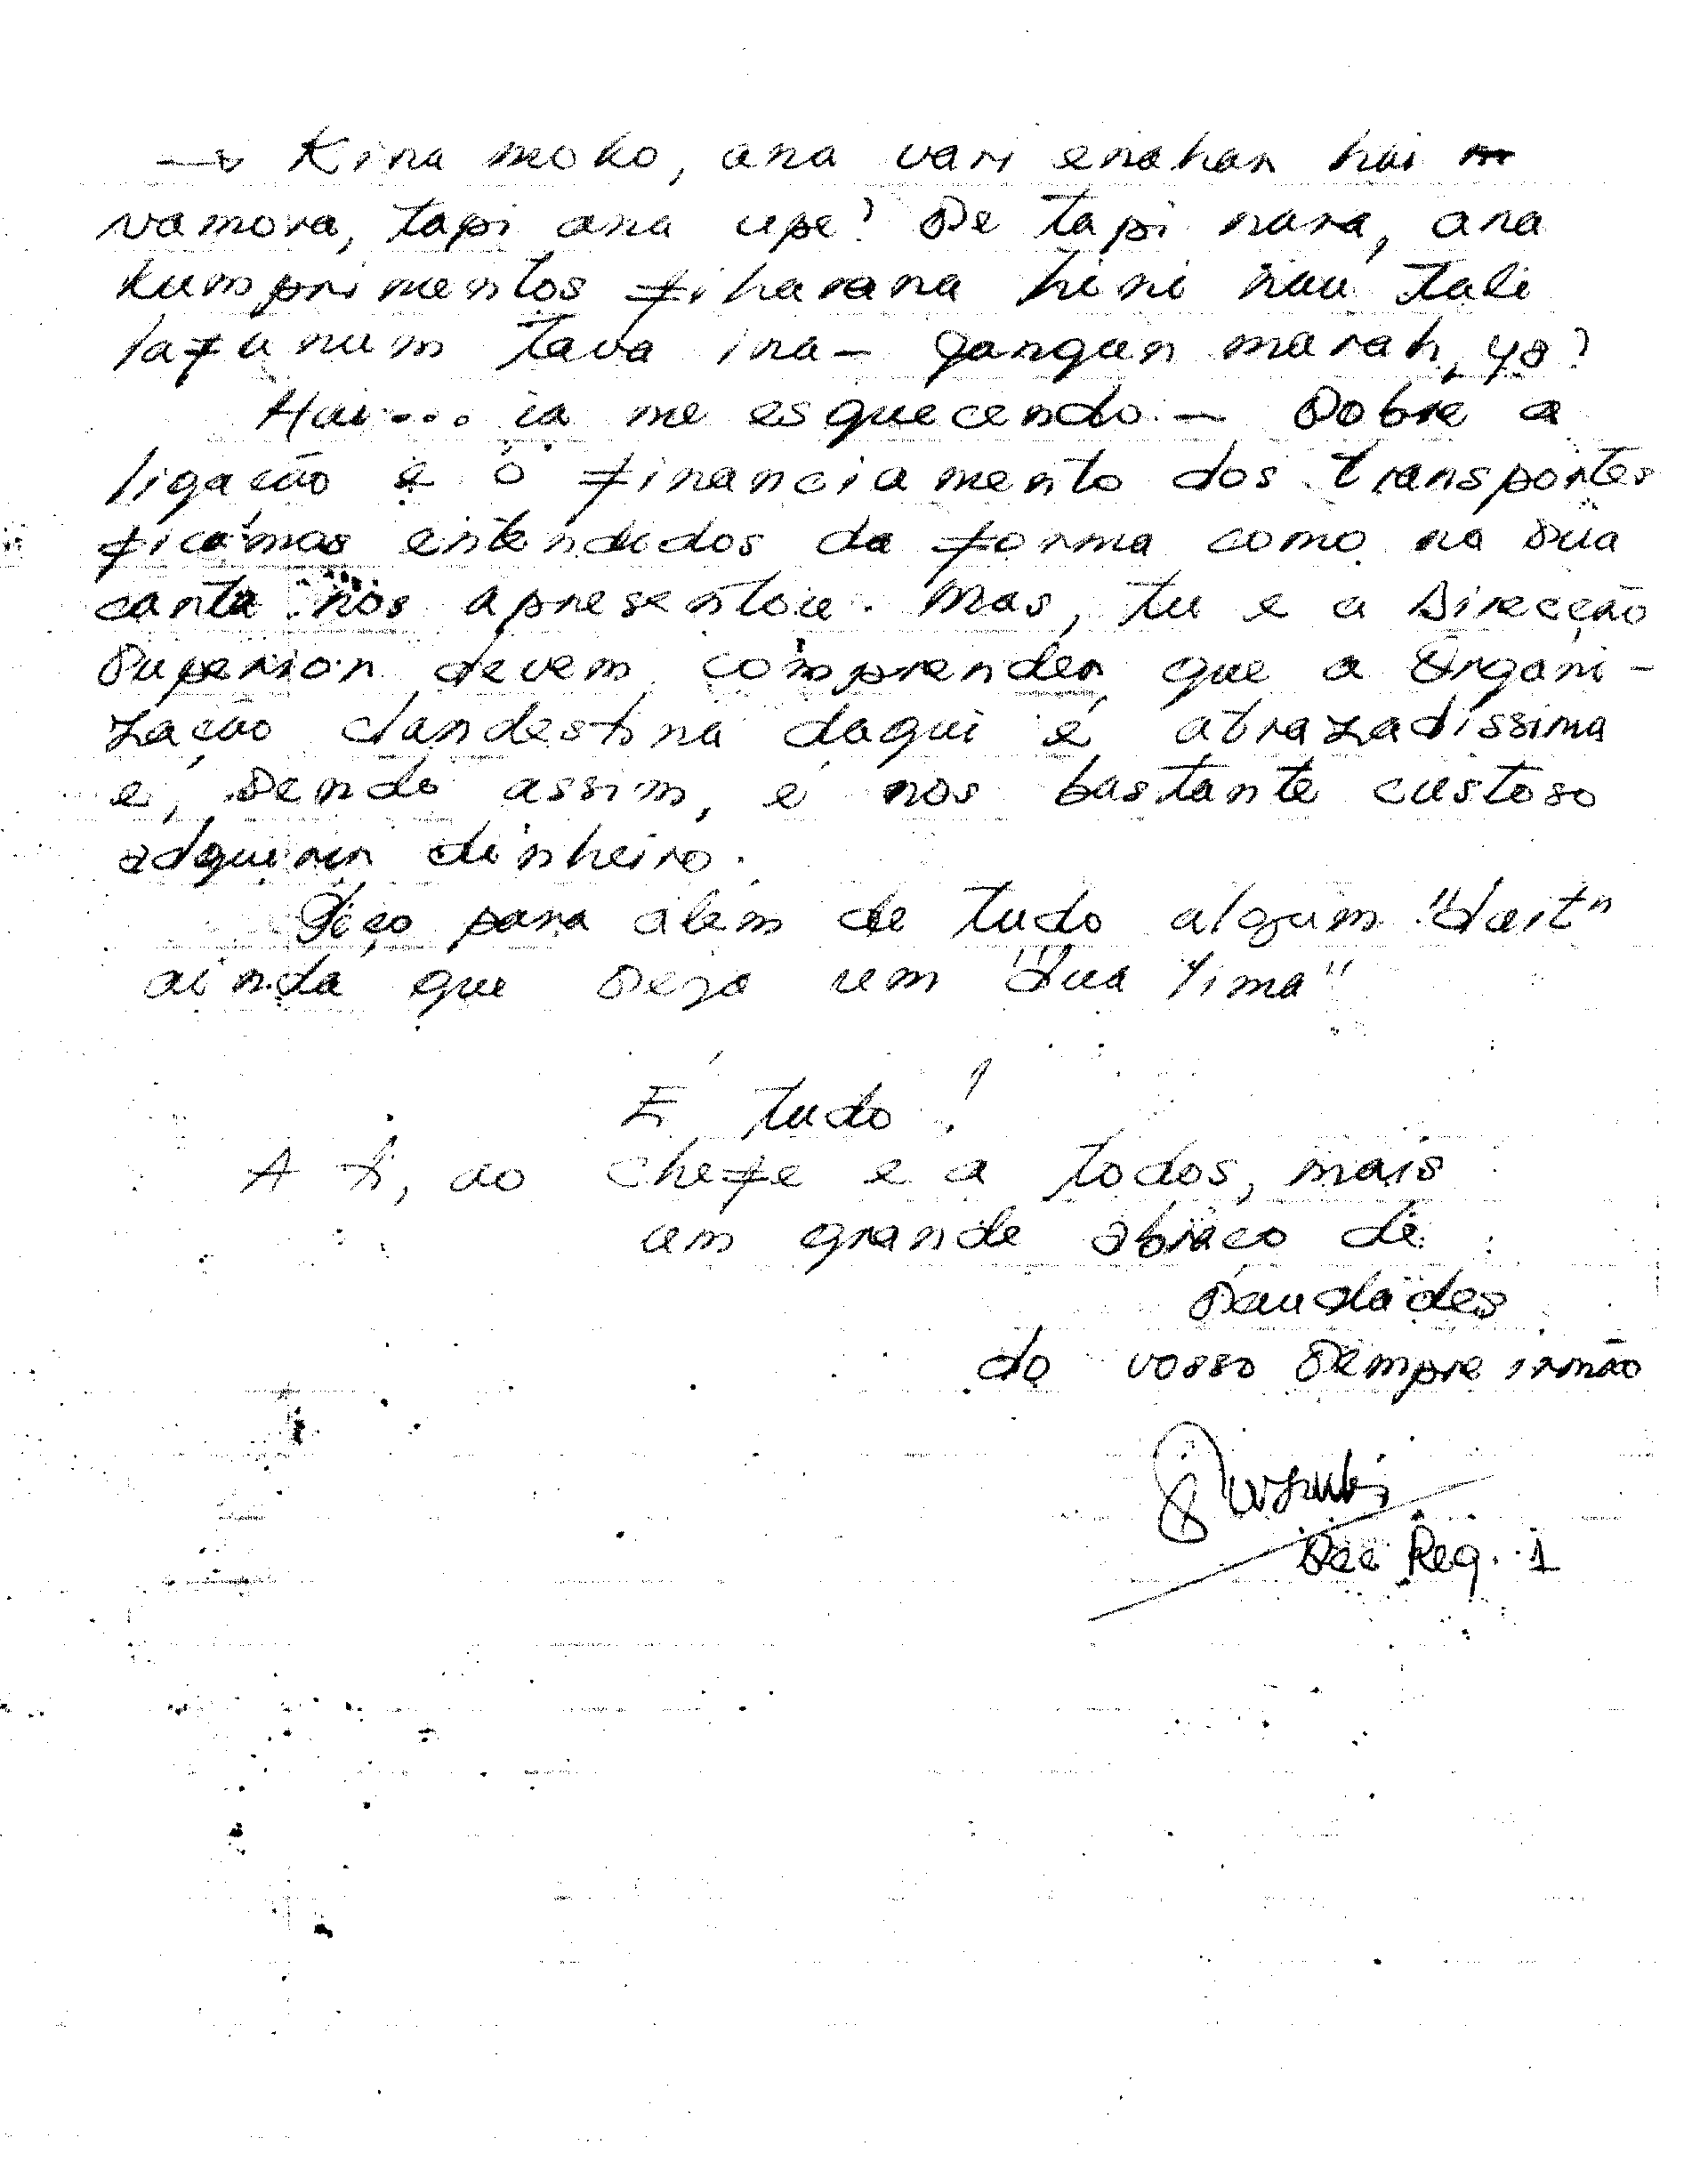 → Kina moko, ana vari enahan hai
namora, tapi ana upe? Se tapi nara, ana
kumprimentos fiharana hini nau Tali
lafunum tava ina - Jangan marah, ya?
Hai... ia me esquecendo. - Sobre a
ligação e o financiamento dos transportes
ficámos entendidos da forma como na sua
carta nos apresentou. Mas, tu e a Direcção
Superior devem comprender que a Organi-
zação clandestina daqui é atrazadíssima
e, sendo assim, é nos bastante custoso
adquirir dinheiro.
Peço para além de tudo algum
ainda que seja um "dua lima"
É tudo!
A ti, ao chefe e a todos, mais
um grande abraço de
saudades
do vosso sempre irmão
Sec Reg. 1